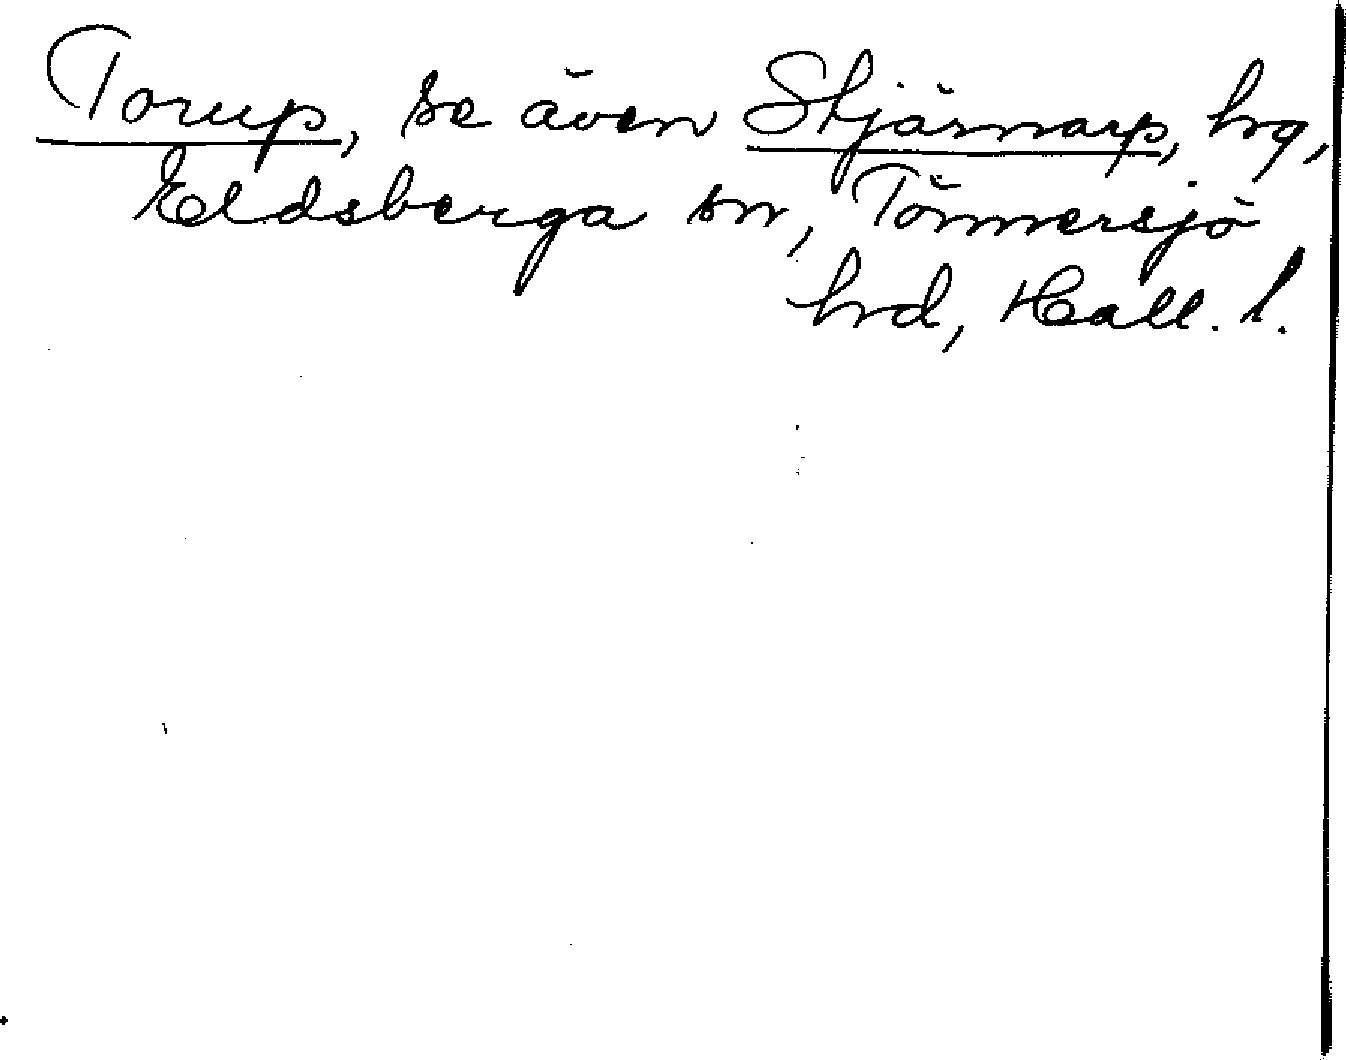 Torup, se även Stjärnarp, hrg,
Eldsberga sn, Tönnersjö
hrd, Hall. l.